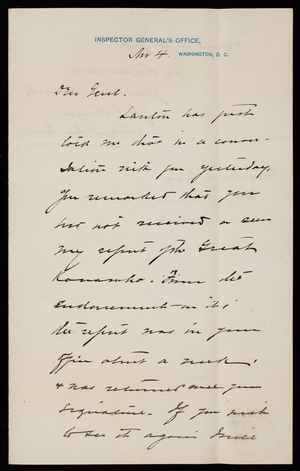 INSPECTOR GENERAL'S OFFICE,
Nov 4. WASHINGTON, D. C.
Dear Genl.
has just
told me that in a conver-
sation with you yesterday,
you remarked that you
had not received or seen
my report of the Great
Kanawha. From the
endorsement on it,
the report was in your
office about a week,
& was returned over your
signature. If you wish
to see it again I will